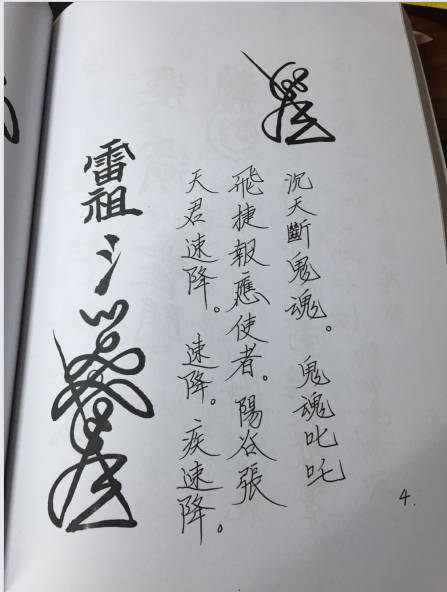 沉天斷鬼魂。鬼魂叱吒
飛捷報應使者。陽谷張
天君速降。速降。疾速降。
雷祖
4.